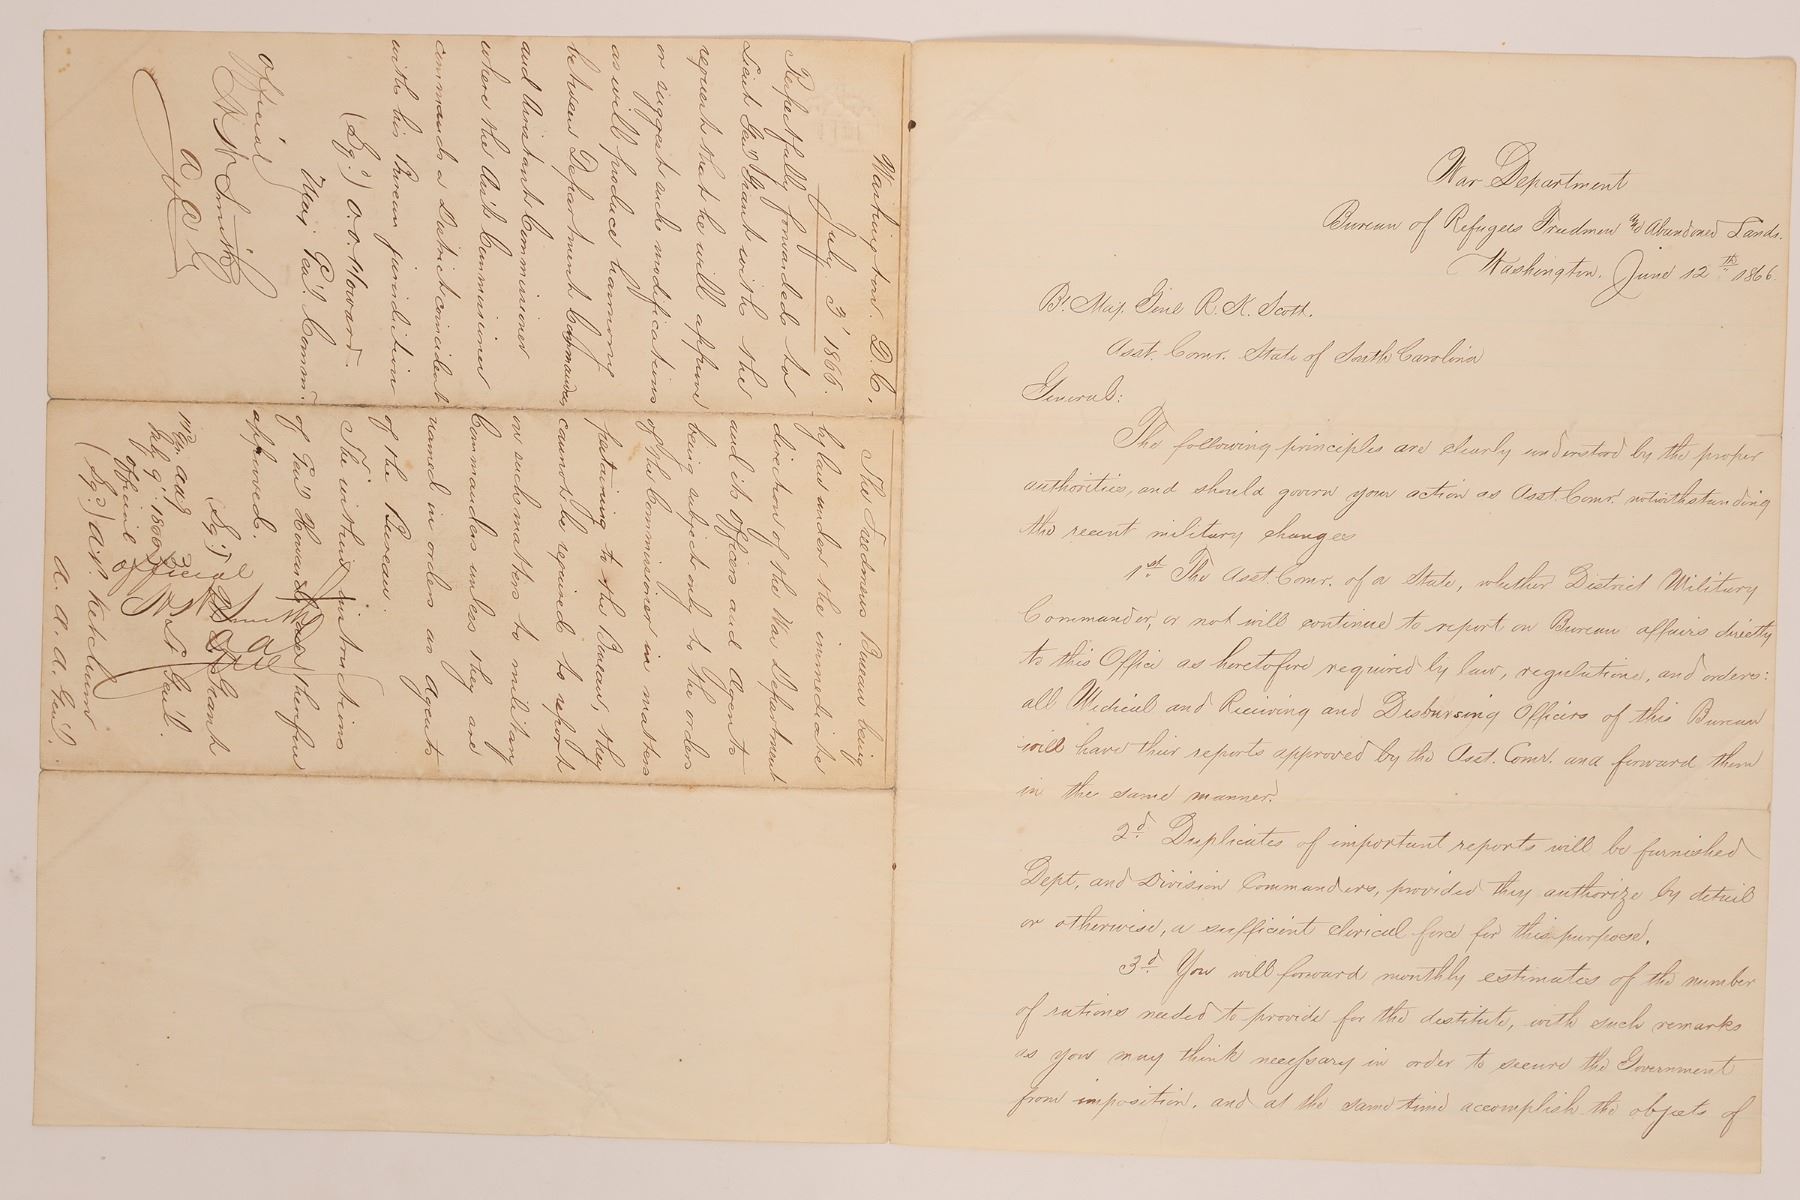 War Department
Bureau of Refugees Freedmen and Abandoned Lands.
Washington. June 12th 1866.
Bt. Maj. Genl R. K. Scott.
Asst. Comr. State of South Carolina
General:
The following principles are clearly understood by the proper
authorities, and should govern your action as Asst. Comr. notwithstanding
the recent military changes
1st The Asst. Comr. of a State, whether District Military
Commander, or not will continue to report on Bureau affairs directly
to this Office as heretofore required by law, regulations, and orders:
all Medical and Receiving and Disbursing Officers of this Bureau
will have their reports approved by the Asst. Comr. and forward them
in the same manner.
2d Duplicates of important reports will be furnished
Dept. and Division Commanders, provided they authorize by detail
or otherwise, a sufficient clerical force for this purpose.
3d You will forward monthly estimates of the number
of rations needed to provide for the destitute, with such remarks
as you may think necessary in order to secure the Government
from imposition, and at the same time accomplish the objects of
Washington. D.C.
July 3d 1866.
Respectfully forwarded to
Lieut Gen'l Grant with the
request that he will approve
or suggest such modifications
as will produce harmony
between Department Commanders
and Assistant Commissioner
where the Ass't Commissioner
commands a District coincident
with his Bureau jurisdiction
(Sg'd) O. O. Howard.
Maj. Gen'l Comm'r.
Official
A. A. G.
The Freedmens Bureau being
by law under the immediate
direction of the War Department
and its officers and Agents
being subject only to the orders
of the Commissioner in matters
pertaining to the Bureau, they
cannot be required to report
on such matters to military
Commanders unless they are
named in orders as agents
of the Bureau.
The within instructions
of Gen'l Howard are therefore
approved.
(Sg'd) U. S. Grant
Lt Gen'l.
July 9' 1866
Official
(Sg'd) A. P. Ketchum
A. A. A. Gen'l.
Official
A. A. G.